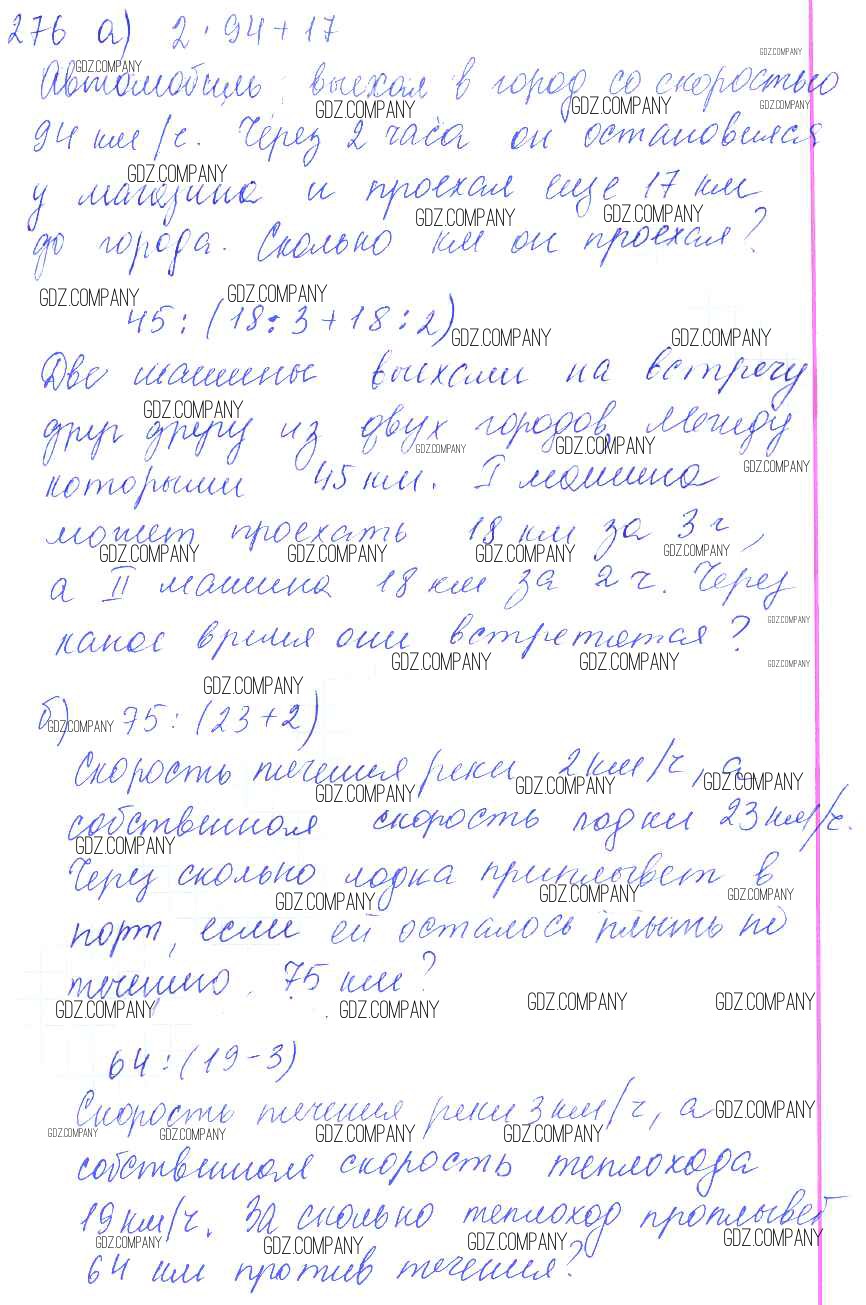 276 а) 2 · 94 + 17
Автомобиль выехал в город со скоростью
94 км/ч. Через 2 часа он остановился
у магазина и проехал еще 17 км
до города. Сколько км он проехал?
45 : (18 : 3 + 18 : 2)
Две машины выехали на встречу
друг другу из двух городов, между
которыми 45 км. I машина
может проехать 18 км за 3 ч,
а II машина 18 км за 2 ч. Через
какое время они встретятся?
б) 75 : (23 + 2)
Скорость течения реки 2 км/ч, а
собственная скорость лодки 23 км/ч.
Через сколько лодка приплывет в
порт, если ей осталось плыть по
течению 75 км?
64 : (19 - 3)
Скорость течения реки 3 км/ч, а
собственная скорость теплохода
19 км/ч. За сколько теплоход проплывет
64 км против течения?
GDZ.COMPANY